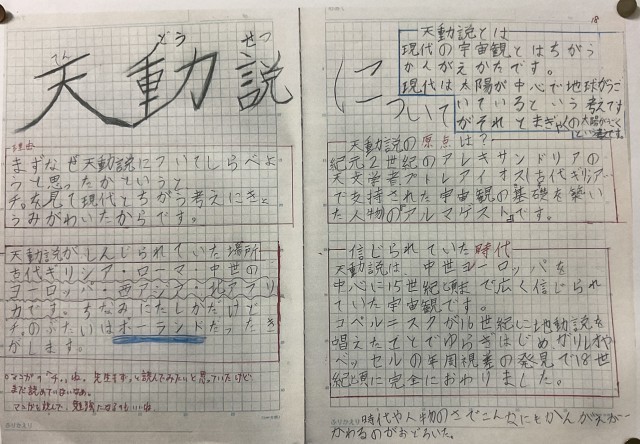 てん どう せつ
天動説
について
理由
まずなぜ天動説についてしらべよ
うと思ったかというと、
チ。を見て現代とちがう考えにきょ
うみがわいたからです。
天動説がしんじられていた場所
古代ギリシア・ローマ・中世の
ヨーロッパ・西アジア・北アフリ
カです。ちなみにたしかだけど
チのぶたいはポーランドだったき
がします。
マンガの「チ。」ね。先生もずっと読んでみたいと思っていたけど
まだ読めていないなあ。
マンガを読んで、勉強になるのもいいね
ふりかえり
18
天動説とは
現代の宇宙観とはちがう
かんがえかたです。
現代は太陽が中心で地球がうご
いているという考えです
がそれとまぎゃくの太陽がうごく
という考えです。
天動説の原点は?
紀元2世紀のアレキサンドリアの
天文学者プトレマイオス(古代ギリシア)
で支持された宇宙観の基礎を築い
た人物の『アルマゲスト』です。
信じられていた時代
天動説は、中世ヨーロッパを
中心に15世紀頃まで広く信じられ
ていた宇宙観です。
コペルニクスが16世紀に地動説を
唱えたことでゆらぎはじめガリレオや
ベッセルの年周視差の発見で18世
紀頃に完全におわりました。
ふりかえり
時代や人物のさでこんなにもかんがえが
かわるのがおどろいた。